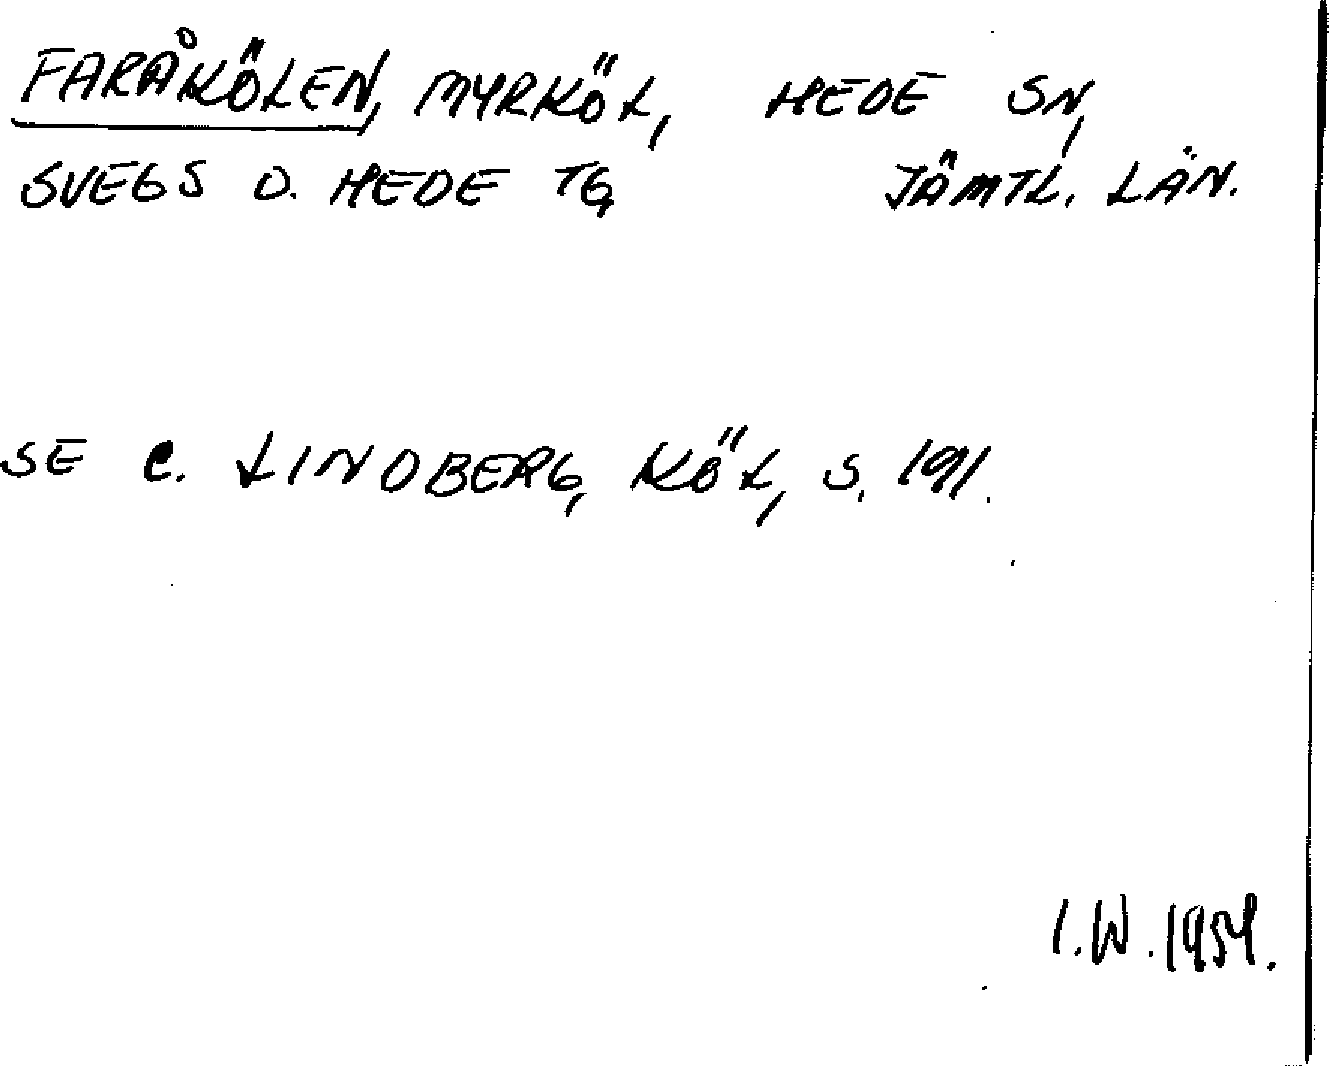 FARÅKÖLEN, MYRKÖL, HEDE SN,
SVEGS O. HEDE TG, JÄMTL. LÄN.
SE C. LINDBERG, KÖL, S. 191.
I.W. 1959.